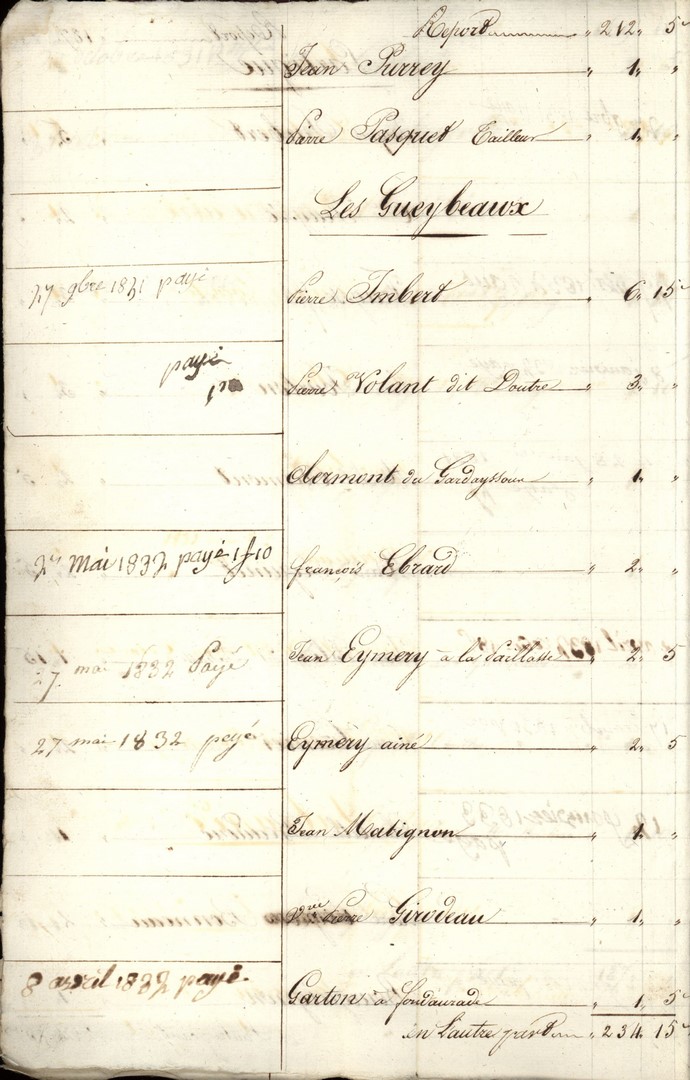 Report " 212 " 5
Jean Purrey " 1 " "
Pierre Pasquet Tailleur " 1 " "
Les Gueybeaux
27 9bre 1831 payé Pierre Imbert " 6 " 15
payé
Pierre Volant dit Poutre " 3 " "
Clermont du Gardayssoux " 1 " "
27 Mai 1832 payé 1f10 françois Ebrard " 2 " "
27 mai 1832 Payé Jean Eymery à la Paillasse " 2 " 5
27 mai 1832 peyé Eymery ainé " 2 " 5
Jean Matignon " 1 " "
Pierre Girodeau " 1 " "
8 avril 1832 payé Garton à fondaurade " 1 " 5
en L'autre part " 234 " 15